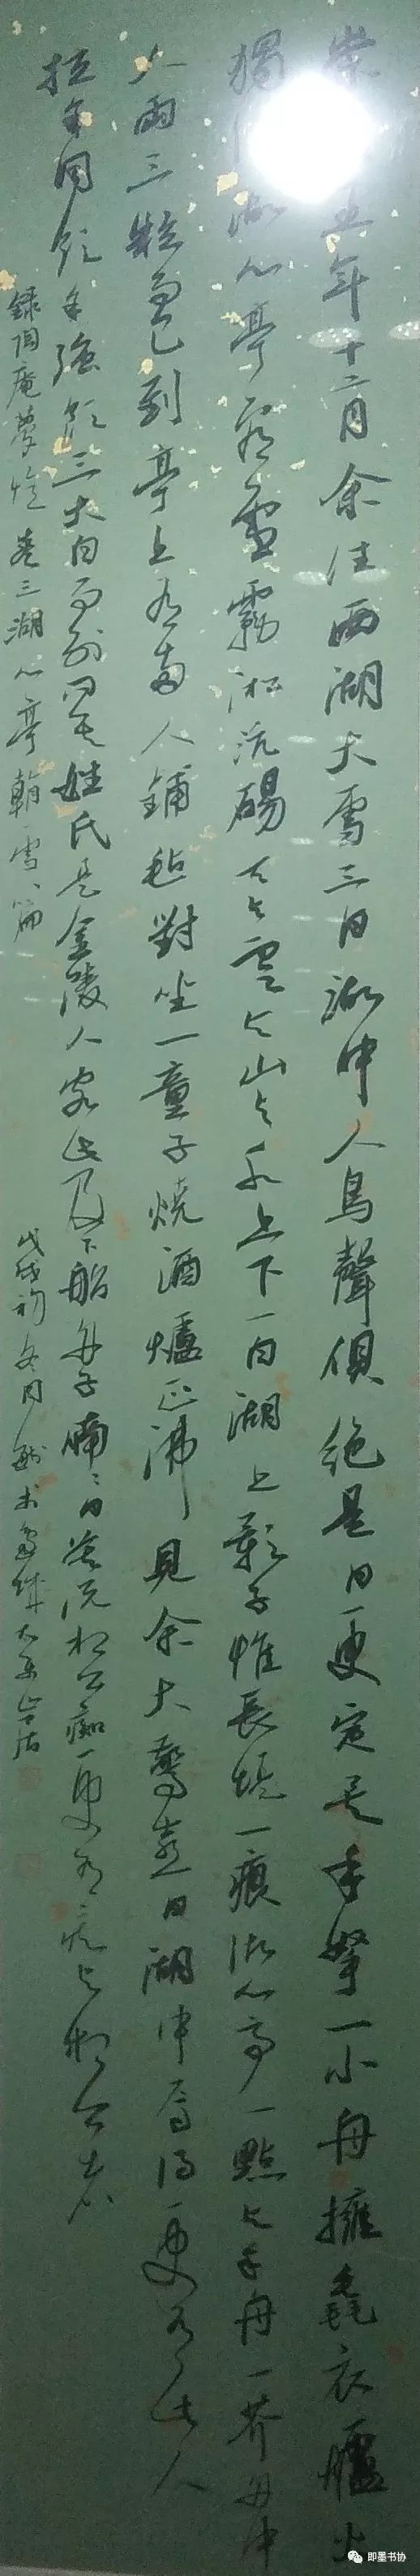 崇 五年十二月余住西湖大雪三日湖中人鳥聲俱绝是日更定矣余拏一小舟擁毳衣爐火
獨 湖心亭看雪霧淞沆碭天與雲與山與水上下一白湖上影子惟長堤一痕湖心亭一點與余舟一芥舟中
人兩三粒而已到亭上有兩人鋪氈對坐一童子燒酒爐正沸見余大驚喜曰湖中焉得更有此人
拉余同飲余強飲三大白而别問其姓氏是金陵人客此及下船舟子喃喃曰莫说相公癡更有癡似相公者
録陶庵夢憶卷三湖心亭 雪一篇
戊戌初冬月
即墨书协